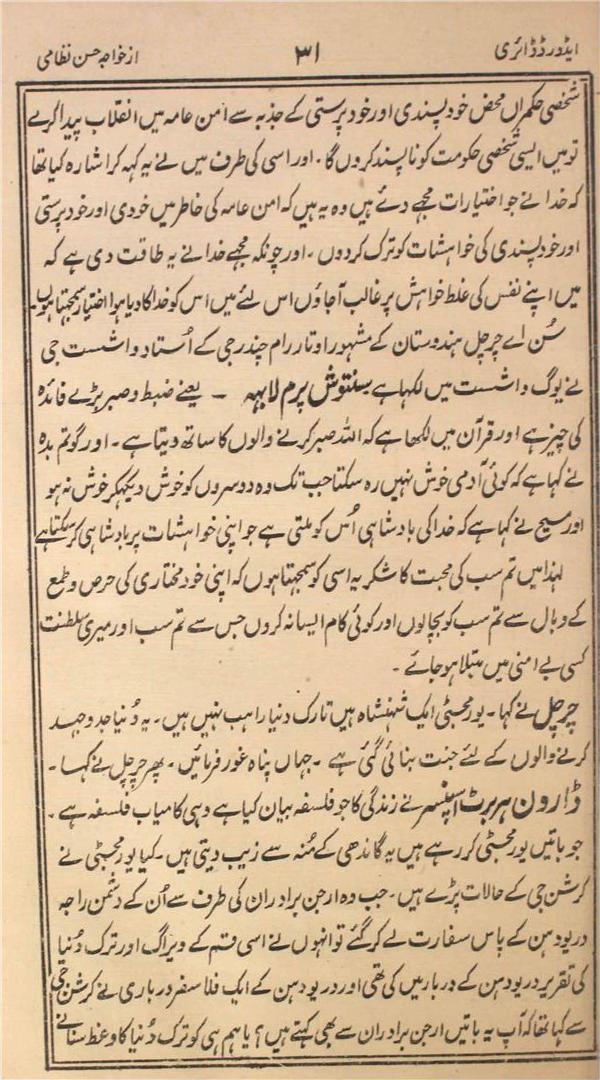 ایڈورڈ ڈائری
۳۱
از خواجہ حسن نظامی
شخصی حکمراں محض خود پسندی اور خود پرستی کے جذبہ سے امن عامہ میں انقلاب پیدا کرے
تو میں ایسی شخصی حکومت کو ناپسند کروں گا۔ اور اسی کی طرف میں نے یہ کہہ کر اشارہ کیا تھا
کہ خدا نے جو اختیارات مجھے دئے ہیں وہ یہ ہیں کہ امن عامہ کی خاطر میں خودی اور خود پرستی
اور خود پسندی کی خواہشات کو ترک کردوں۔ اور چونکہ مجھے خدا نے یہ طاقت دی ہے کہ
میں اپنے نفس کی غلط خواہش پر غالب آجاؤں اس لئے میں اس کو خدا کا دیا ہوا اختیار سمجھتا ہوں۔
سُن اے چرچل ہندوستان کے مشہور اوتار رام چندر جی کے اُستاد واشسٹ جی
نے یوگ واشسٹ میں لکھا ہے سنتوش پرم لابہہ ۔ یعنے ضبط و صبر بڑے فائدہ
کی چیز ہے اور قرآن میں لکھا ہے کہ اللہ صبر کرنے والوں کا ساتھ دیتا ہے۔ اور گوتم بدہ
نے کہا ہے کہ کوئی آدمی خوش نہیں رہ سکتا جب تک وہ دوسروں کو خوش دیکھکر خوش نہ ہو
اور مسیح نے کہا ہے کہ خدا کی بادشاہی اُس کو ملتی ہے جو اپنی خواہشات پر بادشاہی کرسکتا ہے
لہذا میں تم سب کی محبت کا شکریہ اسی کو سمجھتا ہوں کہ اپنی خود مختاری کی حرص و طمع
کے وبال سے تم سب کو بچالوں اور کوئی کام ایسا نہ کروں جس سے تم سب اور میری سلطنت
کسی بے امنی میں مبتلا ہو جائے۔
چرچل نے کہا۔ یور مجسٹی ایک شہنشاہ ہیں تارک دنیا راہب نہیں ہیں۔ یہ دُنیا جدوجہد
کرنے والوں کے لئے جنت بنائی گئی ہے۔ جہاں پناہ غور فرمائیں۔ پھر چرچل نے کہا۔
ڈارون ہربرٹ اسپنسر نے زندگی کا جو فلسفہ بیان کیا ہے وہی کامیاب فلسفہ ہے۔
جو باتیں یور مجسٹی کر رہے ہیں یہ گاندھی کے مُنہ سے زیب دیتی ہیں۔ کیا یور مجسٹی نے
کرشن جی کے حالات پڑے ہیں۔ جب وہ ارجن برادران کی طرف سے اُن کے دشمن راجہ
دریودہن کے پاس سفارت لے کر گئے تو انہوں نے اسی قسم کے ویراگ اور ترک دُنیا
کی تقریر دریودہن کے دربار میں کی تھی اور دریودہن کے ایک فلاسفر درباری نے کرشن جی
سے کہا تھا کہ آپ یہ باتیں ارجن برادران سے بھی کہتے ہیں؟ یا ہم ہی کو ترک دُنیا کا وعظ سنانے